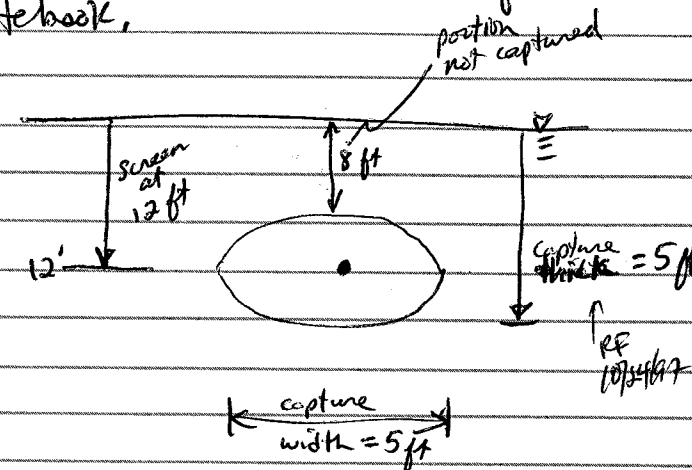 tebook.
portion
not captured
screen
at
12 ft
8 ft
12'
capture
= 5 f
RF
10/24/97
capture
width = 5 ft